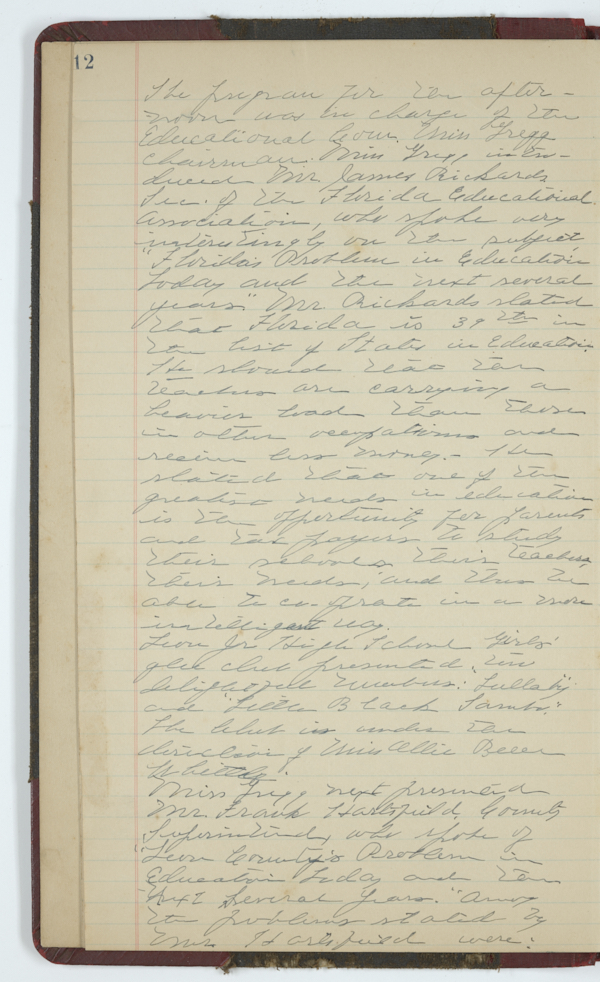 12
The program for the after-
noon was in charge of the
Educational Com. Miss Gregg
chairman. Miss Gregg intro-
duced Mr. James Rickards
Sec. of the Florida Educational
Association, who spoke very
interestingly on the subject
"Florida's Problem in Education
today and the next several
years." Mr Rickards stated
that Florida is 39th in
the list of States in Education.
He showed that the
teachers are carrying a
heavier load than those
in other occupations and
receive less money. - He
stated that one of the
greatest needs in education
is the opportunity for parents
and tax payers to study
their schools, their teachers,
their needs, and thus be
able to co-operate in a more
intelligent way.
Leon Jr High School Girls'
glee club presented two
delightful numbers: "Lullaby"
and "Little Black Sambo."
The club is under the
direction of Miss Allie Beem
Whittle.
Miss Gregg next presented
Mr. Frank Hartsfield, County
Superintendent, who spoke of
"Leon County's Problem in
Education today and the
Next Several Years." Among
the problems stated by
Mr. Hartsfield were: